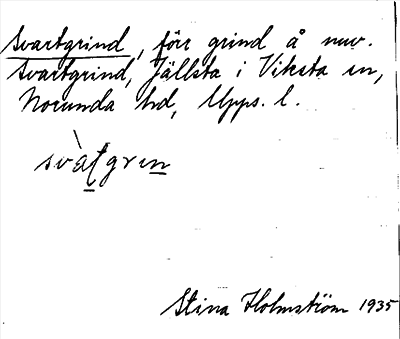 Svartgrind, förr grind å nuv.
Svartgrind, Jällsta i Viksta sn,
Norunda hd, Upps. l.
svàtgrin
Stina Holmström 1935